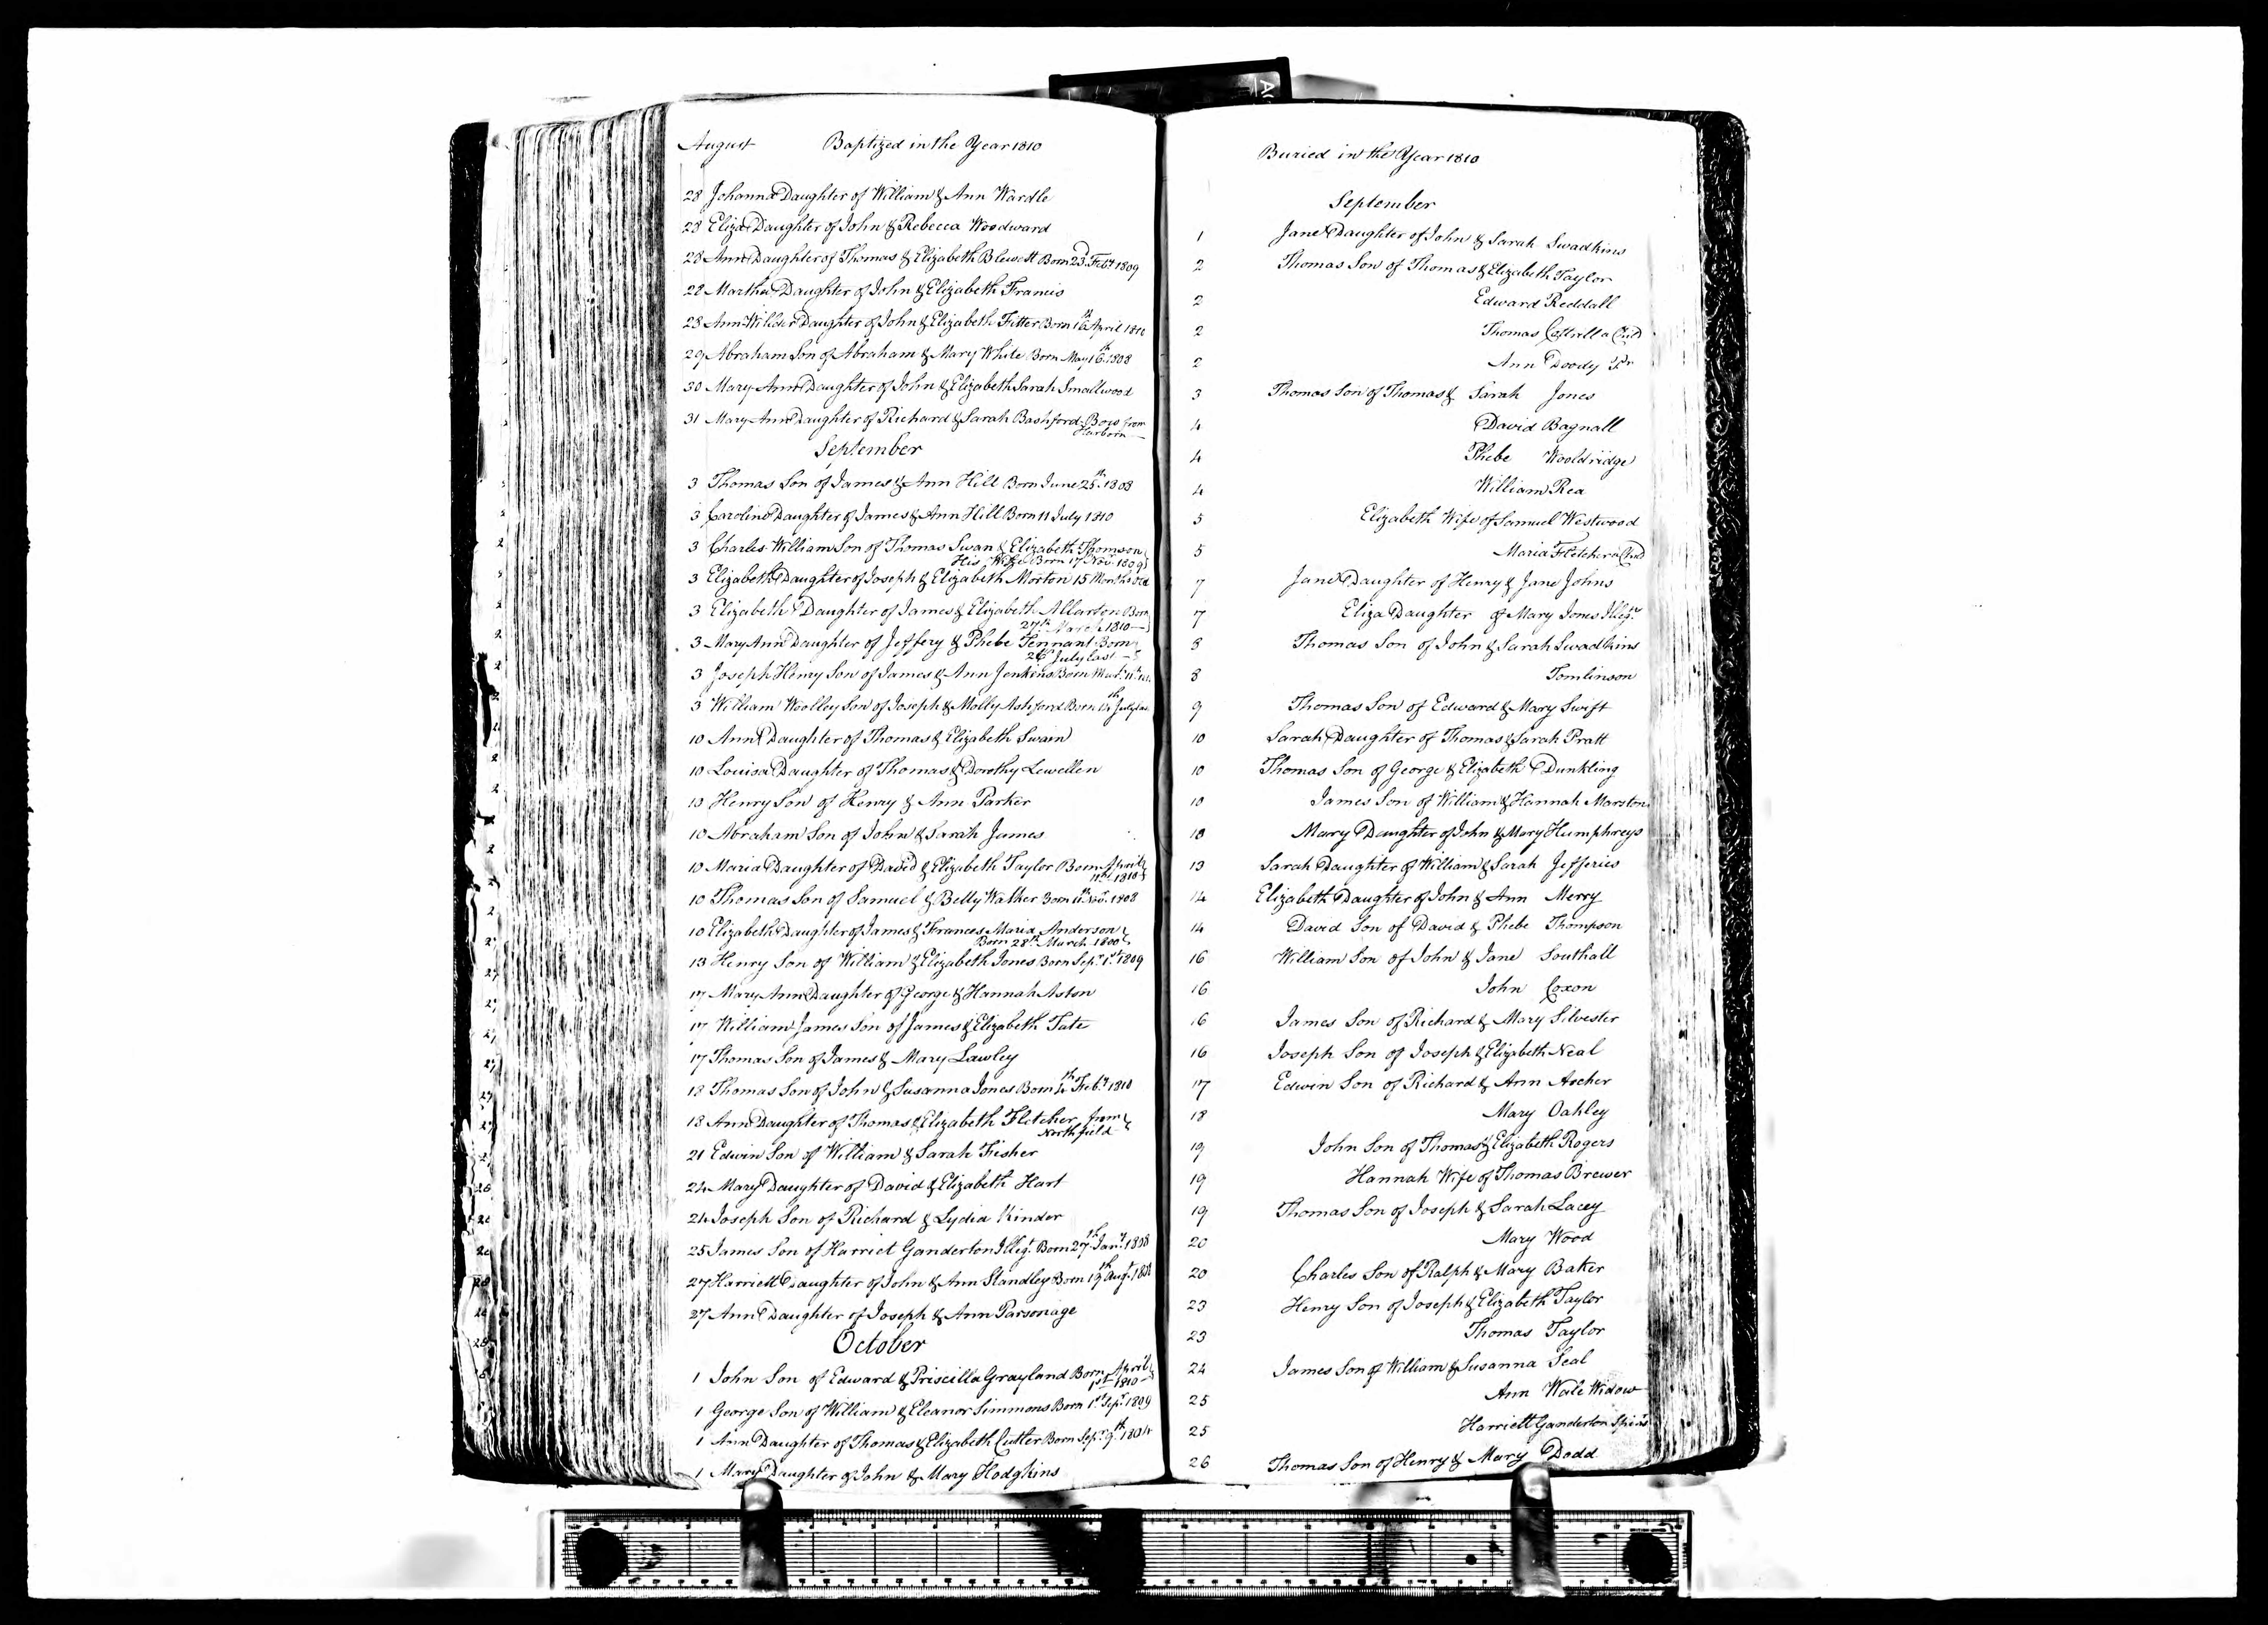 August Baptized in the Year 1810
28 Johanna Daughter of William & Ann Wardle
28 Eliza Daughter of John & Rebecca Woodward
28 Ann Daughter of Thomas & Elizabeth Blewett Born 23d Feby 1809
28 Martha Daughter of John & Elizabeth Francis
28 Ann Wilder Daughter of John & Elizabeth Fitter Born 16th April 1810
29 Abraham Son of Abraham & Mary White Born May 16th 1808
30 Mary Ann Daughter of John & Elizabeth Sarah Smallwood
31 Mary Ann Daughter of Richard & Sarah Bashford from
Harborn
September
3 Thomas Son of James & Ann Hill Born June 25th 1808
3 Caroline Daughter of James & Ann Hill Born 11 July 1810
3 Charles William Son of Thomas Swan & Elizabeth Thomson
His Wife Born 17 Nov. 1809
3 Elizabeth Daughter of Joseph & Elizabeth Morton 15 Months Old
3 Elizabeth Daughter of James & Elizabeth Allarton Born
27th March 1810
3 Mary Ann Daughter of Jeffery & Phebe Tennant Born
26th July last
3 Joseph Henry Son of James & Ann Jenkins Born
3 William Woolley Son of Joseph & Molly Ashford Born July last
10 Ann Daughter of Thomas & Elizabeth Swain
10 Louisa Daughter of Thomas & Dorothy Lewellen
10 Henry Son of Henry & Ann Parker
10 Abraham Son of John & Sarah James
10 Maria Daughter of David & Elizabeth Taylor Born April
11th 1810
10 Thomas Son of Samuel & Betty Walker Born 11th Novr. 1808
10 Elizabeth Daughter of James & Frances Maria Anderson
Born 28th March 1800
13 Henry Son of William & Elizabeth Jones Born Sepr. 1st 1809
17 Mary Ann Daughter of George & Hannah Aston
17 William James Son of James & Elizabeth Tate
17 Thomas Son of James & Mary Lawley
18 Thomas Son of John & Susanna Jones Born 4th Feby 1810
18 Ann Daughter of Thomas & Elizabeth Fletcher from
Northfield
21 Edwin Son of William & Sarah Fisher
24 Mary Daughter of David & Elizabeth Hart
24 Joseph Son of Richard & Lydia Kinder
25 James Son of Harriet Ganderton Illegt. Born 27th Jany. 1808
27 Harriett Daughter of John & Ann Standley Born 19th Augt.
27 Ann Daughter of Joseph & Ann Parsonage
October
1 John Son of Edward & Priscilla Grayland Born April
1st 1810
1 George Son of William & Eleanor Simmons Born 1st Sepr. 1809
1 Ann Daughter of Thomas & Elizabeth Cutler Born Sepr. 9th 1804
1 Mary Daughter of John & Mary Hodgkins
Buried in the Year 1810
September
1 Jane Daughter of John & Sarah Swadkins
2 Thomas Son of Thomas & Elizabeth Taylor
2 Edward Reddall
2 Thomas Cottrill a Child
2 Ann Doody
3 Thomas Son of Thomas & Sarah Jones
4 David Bagnall
4 Phebe Wooldridge
4 William Rea
5 Elizabeth Wife of Samuel Westwood
5 Maria Fletcher a Child
7 Jane Daughter of Henry & Jane Johns
7 Eliza Daughter of Mary Jones Illegt.
8 Thomas Son of John & Sarah Swadkins
8 Tomlinson
9 Thomas Son of Edward & Mary Swift
10 Sarah Daughter of Thomas & Sarah Pratt
10 Thomas Son of George & Elizabeth Dunkling
10 James Son of William & Hannah Marston
10 Mary Daughter of John & Mary Humphreys
13 Sarah Daughter of William & Sarah Jefferies
14 Elizabeth Daughter of John & Ann Merry
14 David Son of David & Phebe Thompson
16 William Son of John & Jane Southall
16 John Coxon
16 James Son of Richard & Mary Silvester
16 Joseph Son of Joseph & Elizabeth Neal
17 Edwin Son of Richard & Ann Archer
18 Mary Oakley
19 John Son of Thomas & Elizabeth Rogers
19 Hannah Wife of Thomas Brewer
19 Thomas Son of Joseph & Sarah Lacey
20 Mary Wood
20 Charles Son of Ralph & Mary Baker
23 Henry Son of Joseph & Elizabeth Taylor
23 Thomas Taylor
24 James Son of William & Susanna Seal
25 Ann Wale Widow
25 Harriett Ganderton
26 Thomas Son of Henry & Mary Dodd